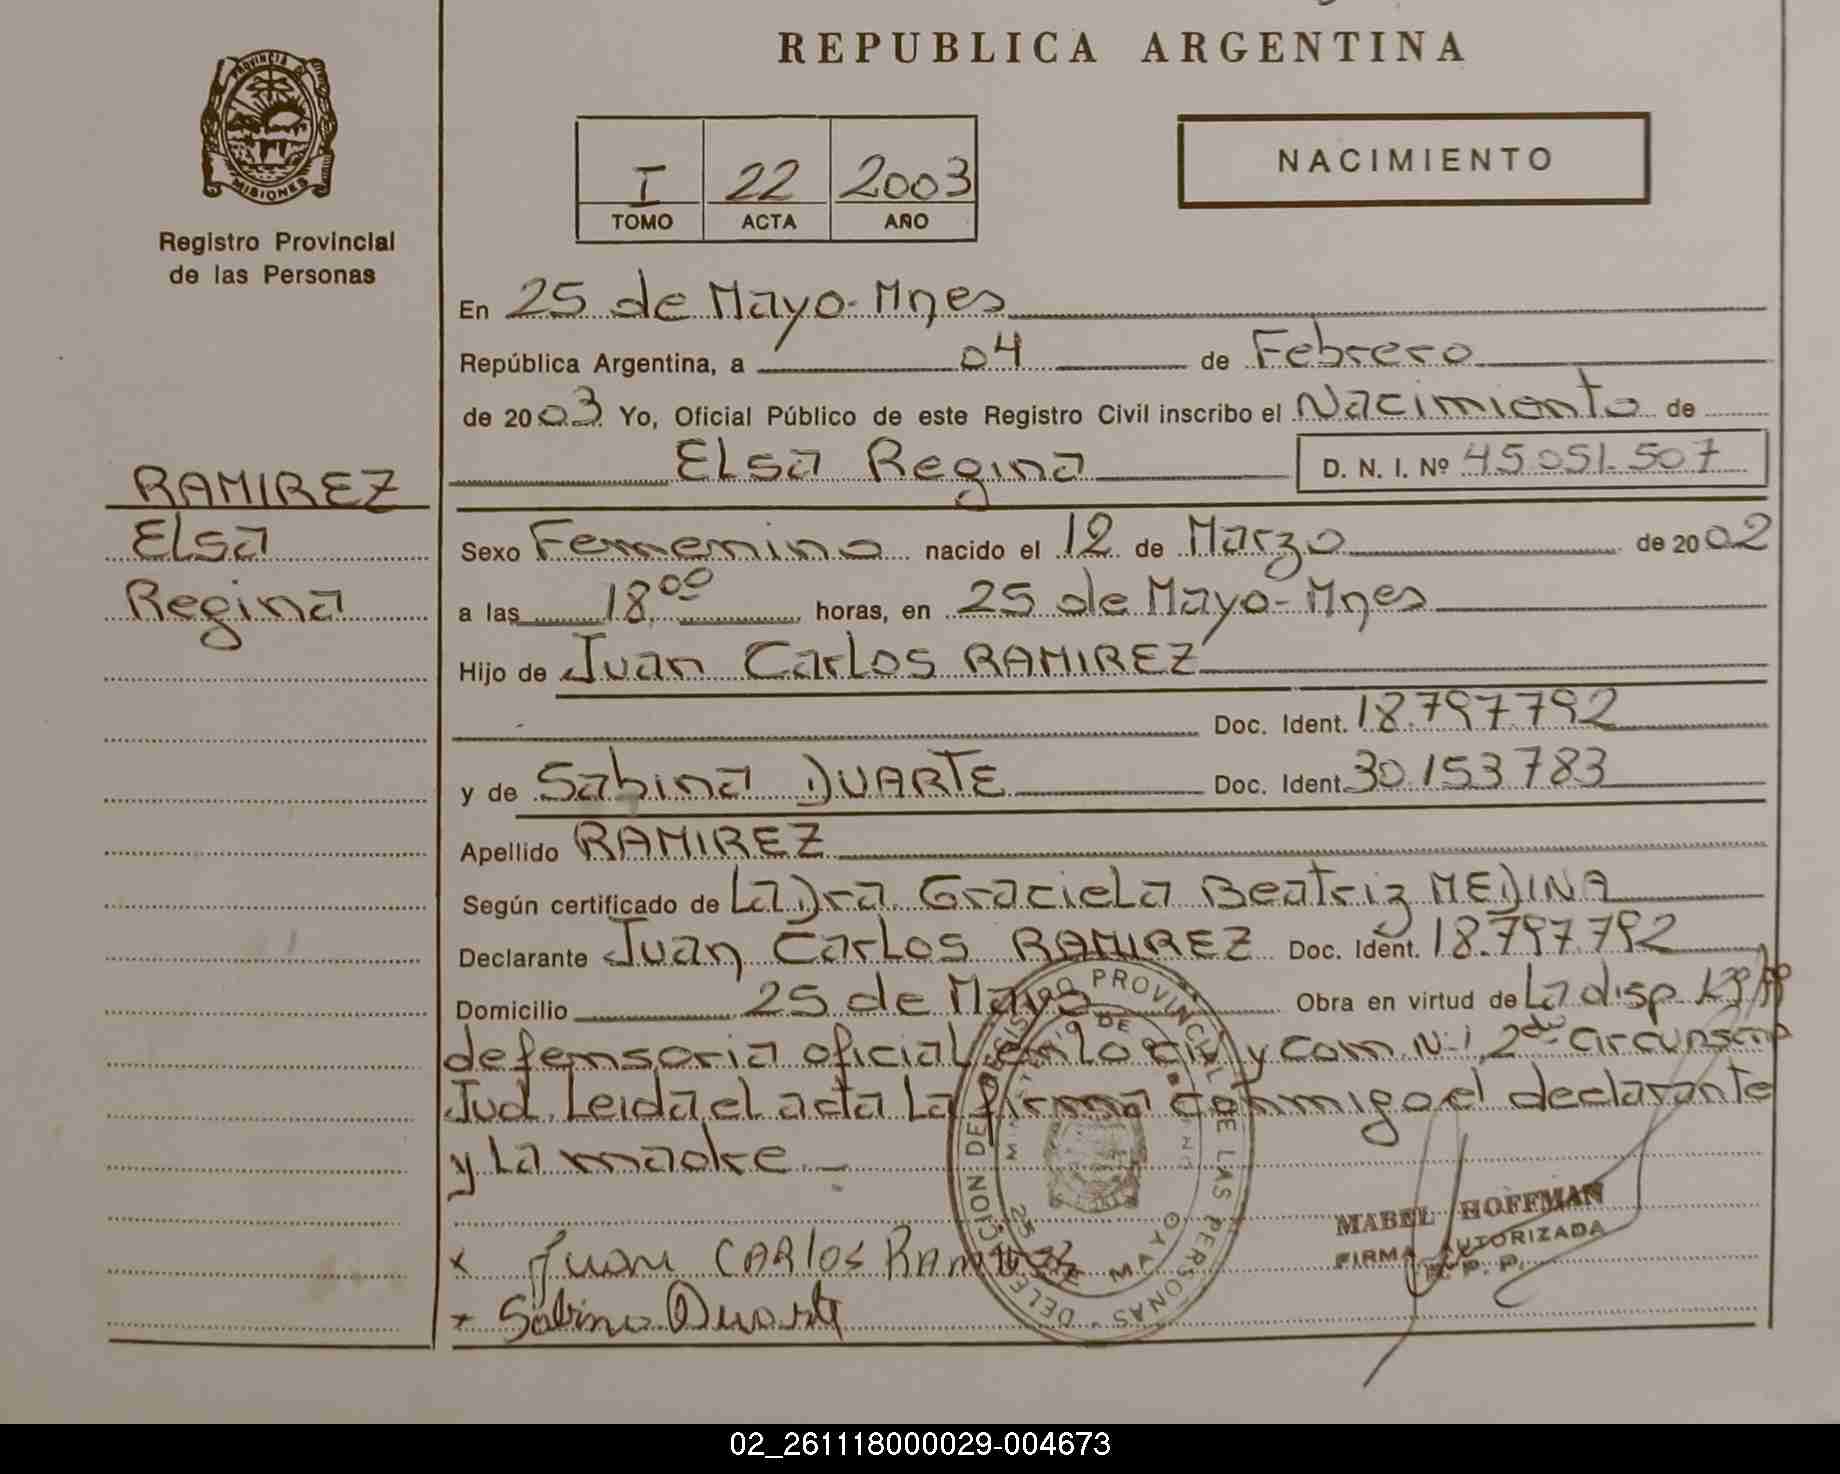 REPUBLICA ARGENTINA
PROVINCIA DE
MISIONES
Registro Provincial
de las Personas
I 22 2003
TOMO ACTA AÑO
NACIMIENTO
En 25 de Mayo-Mnes
República Argentina, a 04 de Febrero
de 2003 Yo, Oficial Público de este Registro Civil inscribo el Nacimiento de
Elsa Regina D. N. I. Nº 45.051.507
RAMIREZ
Elsa
Regina
Sexo Femenino nacido el 12 de Marzo de 2002
a las 18.00 horas, en 25 de Mayo-Mnes
Hijo de Juan Carlos RAMIREZ
Doc. Ident. 18.797.792
y de Sabina DUARTE Doc. Ident. 30.153.783
Apellido RAMIREZ
Según certificado de La Dra. Graciela Beatriz MEDINA
Declarante Juan Carlos RAMIREZ Doc. Ident. 18.797.792
Domicilio 25 de Mayo Obra en virtud de La disp.
defensoria oficial en lo civ y com. Nº 1, 2da circunscrip
Jud. Leida el acta La firma conmigo el declarante
y La madre.
x Juan CARlos RAMIREZ
x Sabina Duarte
MABEL HOFFMAN
FIRMA AUTORIZADA
R. P. P.
DELEGACION DEL REGISTRO PROVINCIAL DE LAS PERSONAS
MINISTERIO DE GOBIERNO
25 DE MAYO
02_261118000029-004673